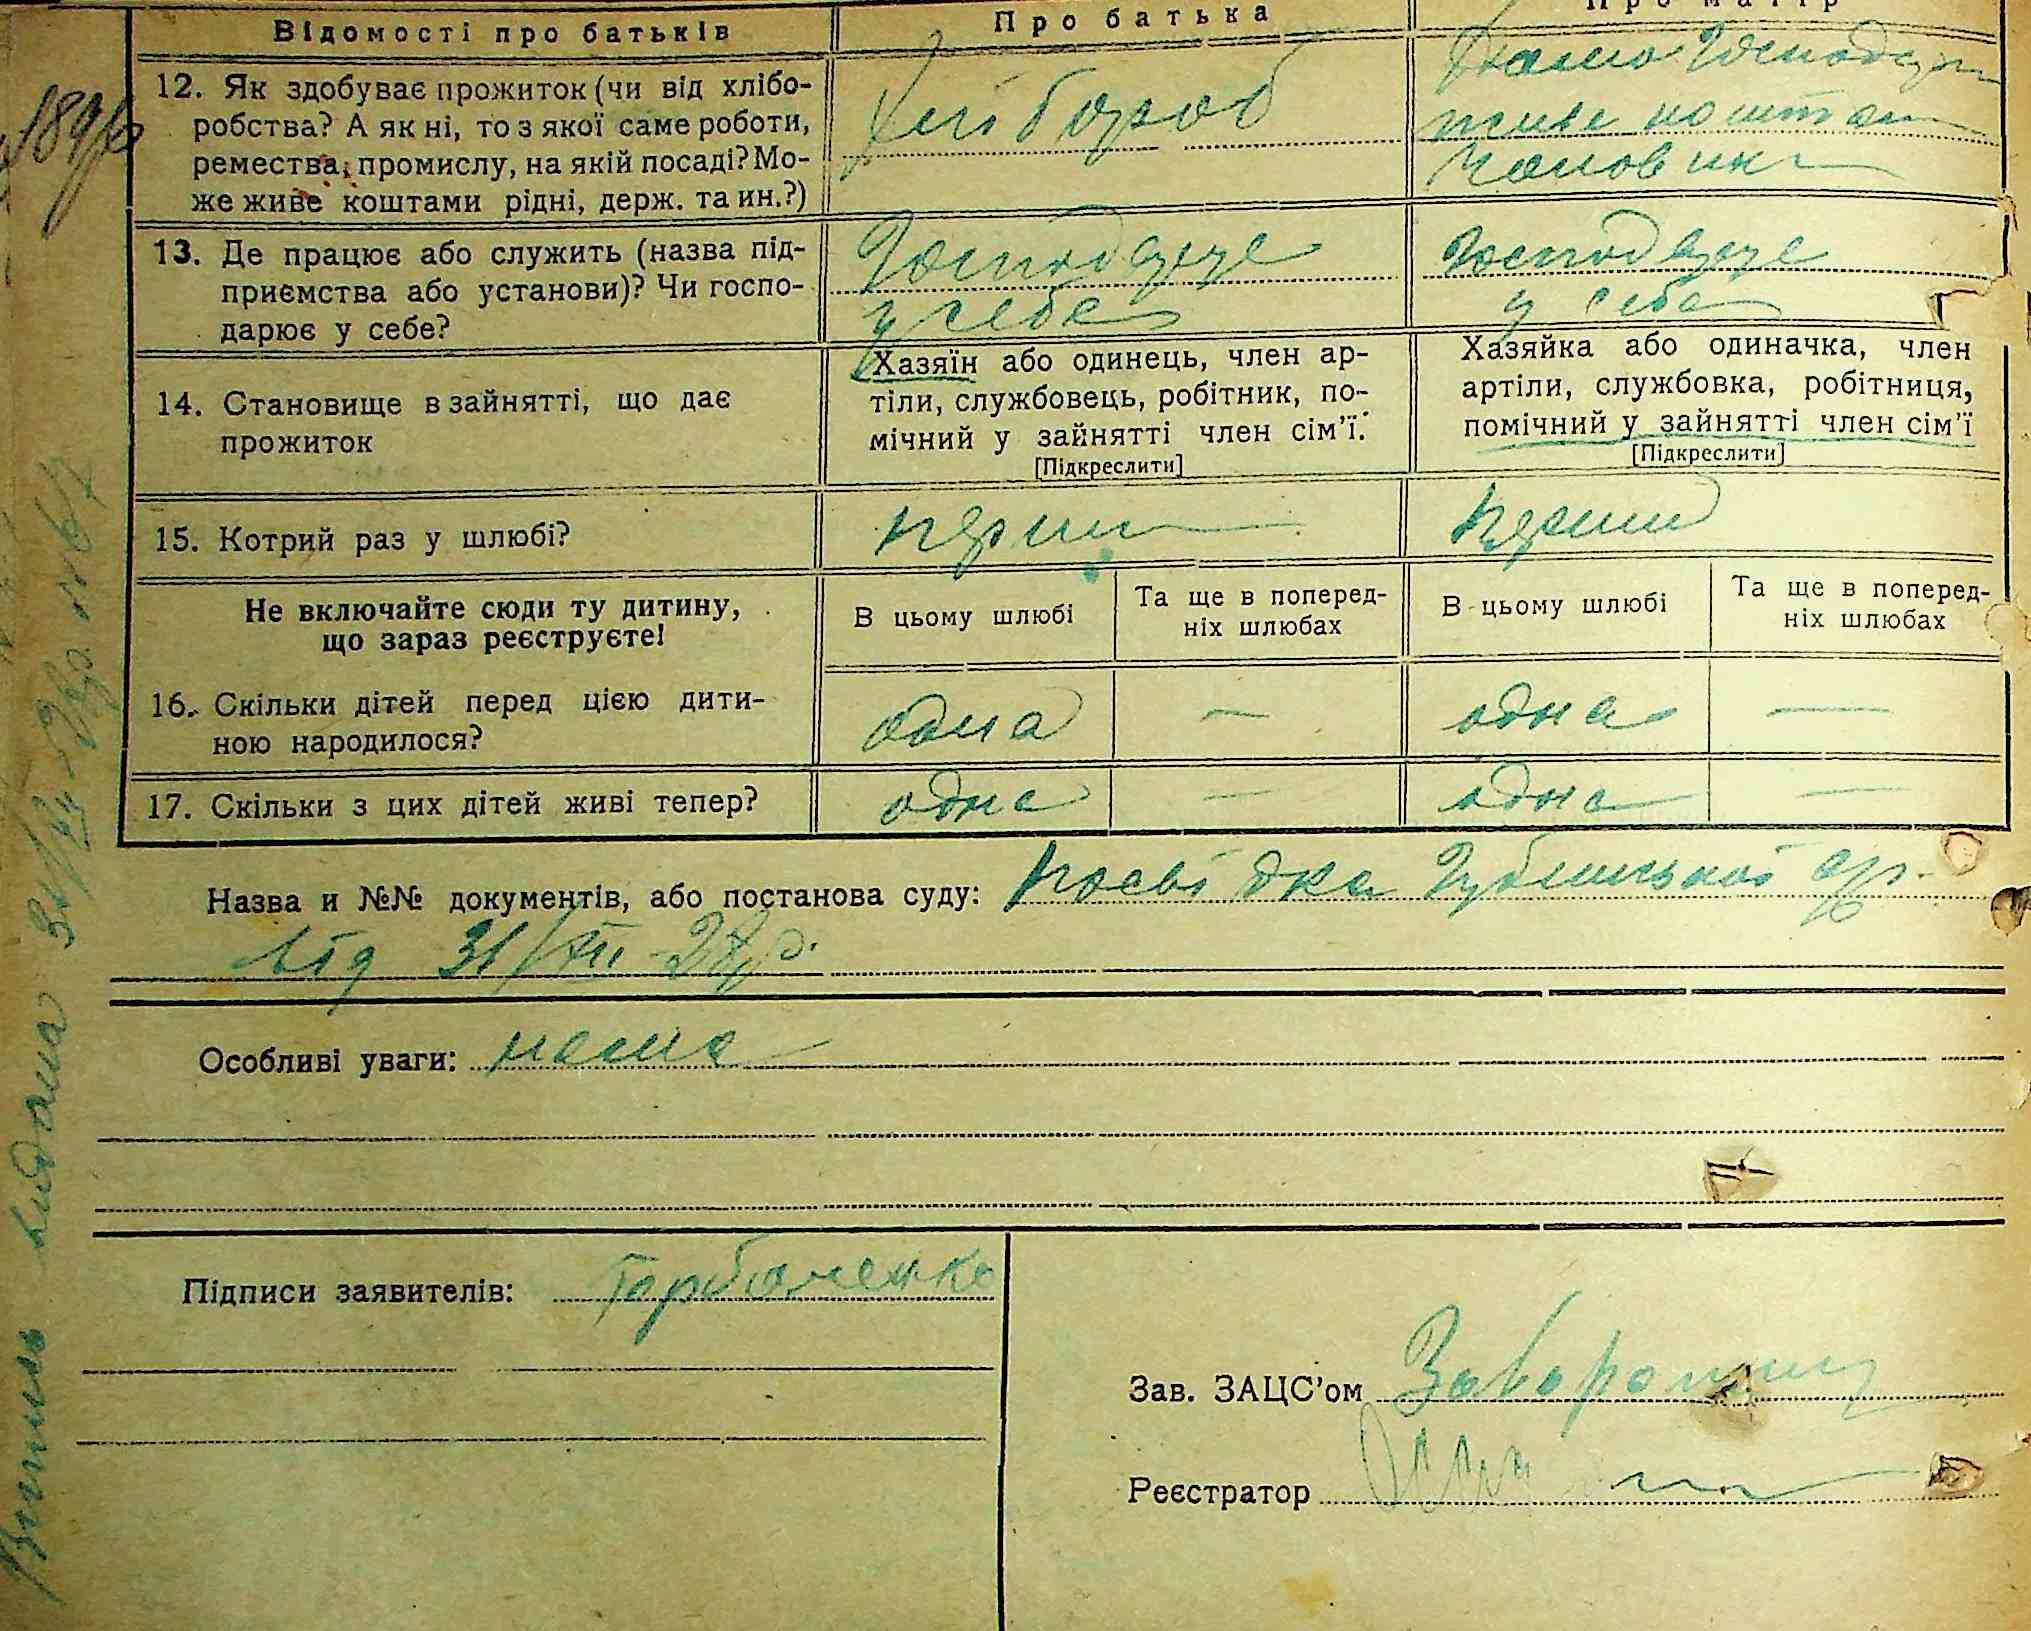 Відомості про батьків
Про батька
Про матір
12. Як здобуває прожиток (чи від хлібо-
робства? А як ні, то з якої саме роботи,
ремества, промислу, на якій посаді? Мо-
же живе коштами рідні, держ. та ин.?)
Хлібороб
Дома
живе коштом
13. Де працює або служить (назва під-
приємства або установи)? Чи госпо-
дарює у себе?
Господарює
у себе
Господарює
у себе
14. Становище в зайнятті, що дає
прожиток
Хазяїн або одинець, член ар-
тіли, службовець, робітник, по-
мічний у зайнятті член сім’ї.
[Підкреслити]
Хазяйка або одиначка, член
артіли, службовка, робітниця,
помічний у зайнятті член сім’ї
[Підкреслити]
15. Котрий раз у шлюбі?
перший
перший
Не включайте сюди ту дитину,
що зараз реєструєте!
В цьому шлюбі
Та ще в поперед-
ніх шлюбах
В цьому шлюбі
Та ще в поперед-
ніх шлюбах
16. Скільки дітей перед цією дити-
ною народилося?
одна
—
одна
—
17. Скільки з цих дітей живі тепер?
одна
—
одна
—
Назва и №№ документів, або постанова суду: посвідка
від 31/XII-28р.
Особливі уваги: нема
Підписи заявителів: Горбаченко
Зав. ЗАЦС’ом
Реєстратор